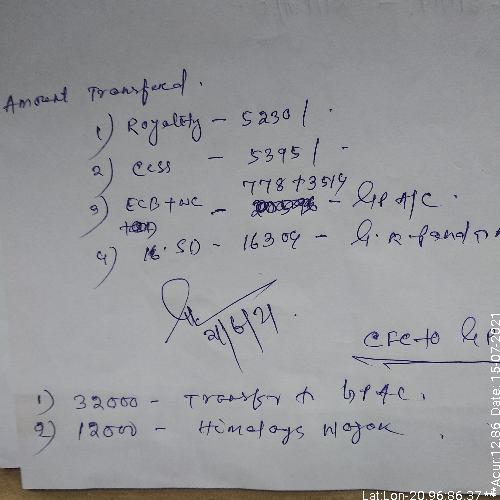 Amount Transfered.
1) Royalty - 5230/.
2) CCSS - 5395/.
778+3514
3) ECB+NC - - GP A/C.
4) SD - 16309 -
21/6/21.
CFC to GP
1) 32000 - Transfer to GPAC.
2) 12000 - Himalays Nayak.
**Acur:12.86 Date: 15-07-2021
Lat:Lon-20.96:86.37 **